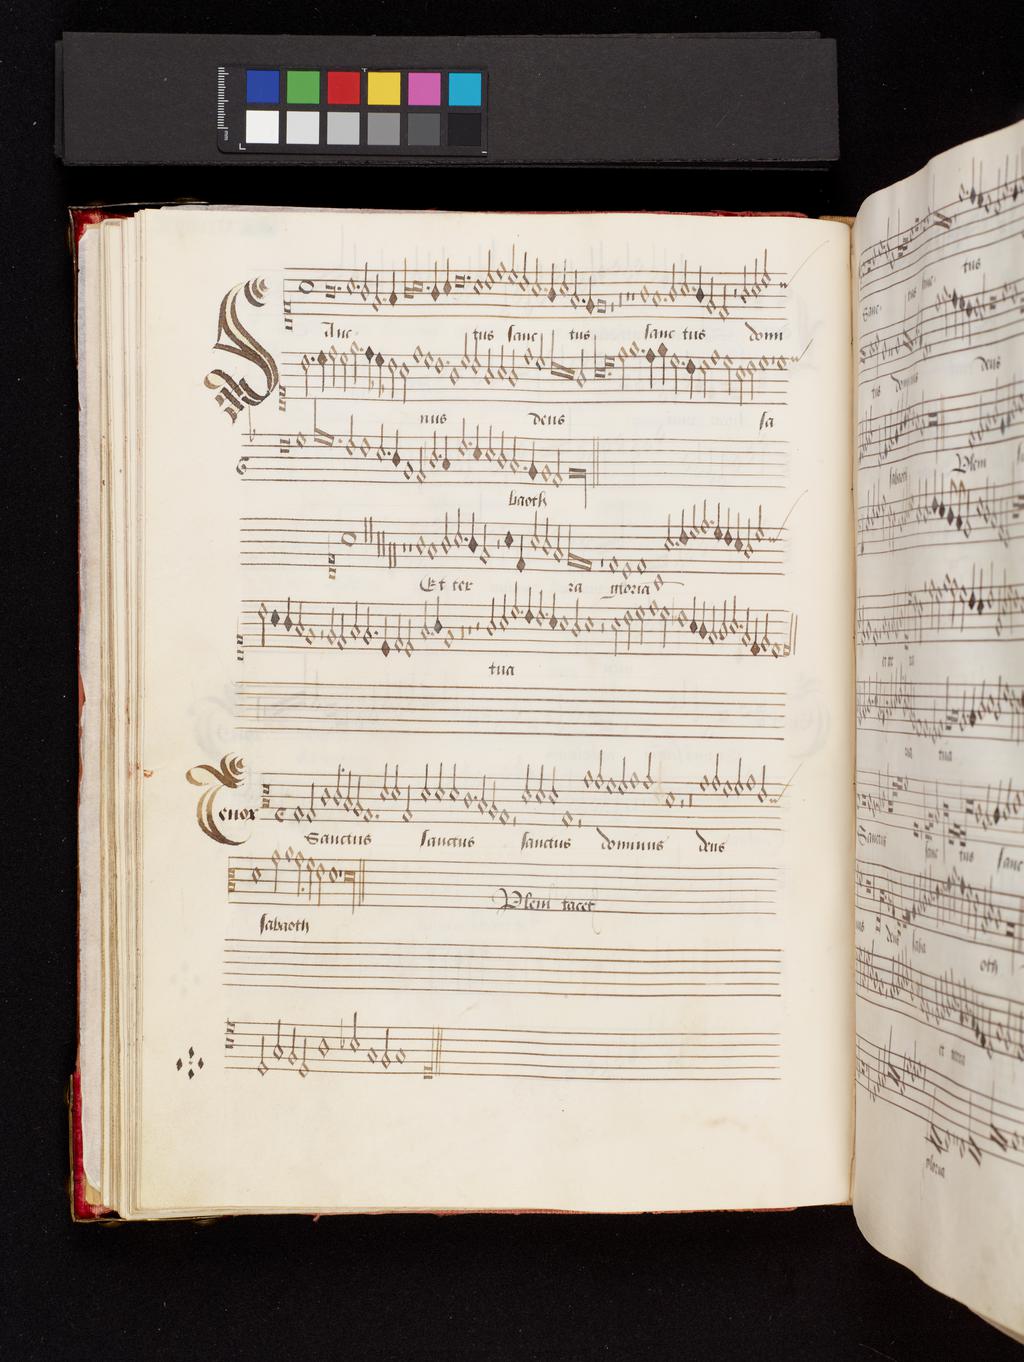 Sanc- tus sanc tus sanc tus domi
nus deus sa
baoth
Et ter ra gloria
tua
Tenor
Sanctus sanctus sanctus dominus deus
sabaoth
Pleni tacet
tus
Sanc- tus sanc-
deus
tus dominus
sabaoth Pleni
et ter ra
ra tua
Sanctus sanc tus sanc
deus saba
oth
et terra
gloria